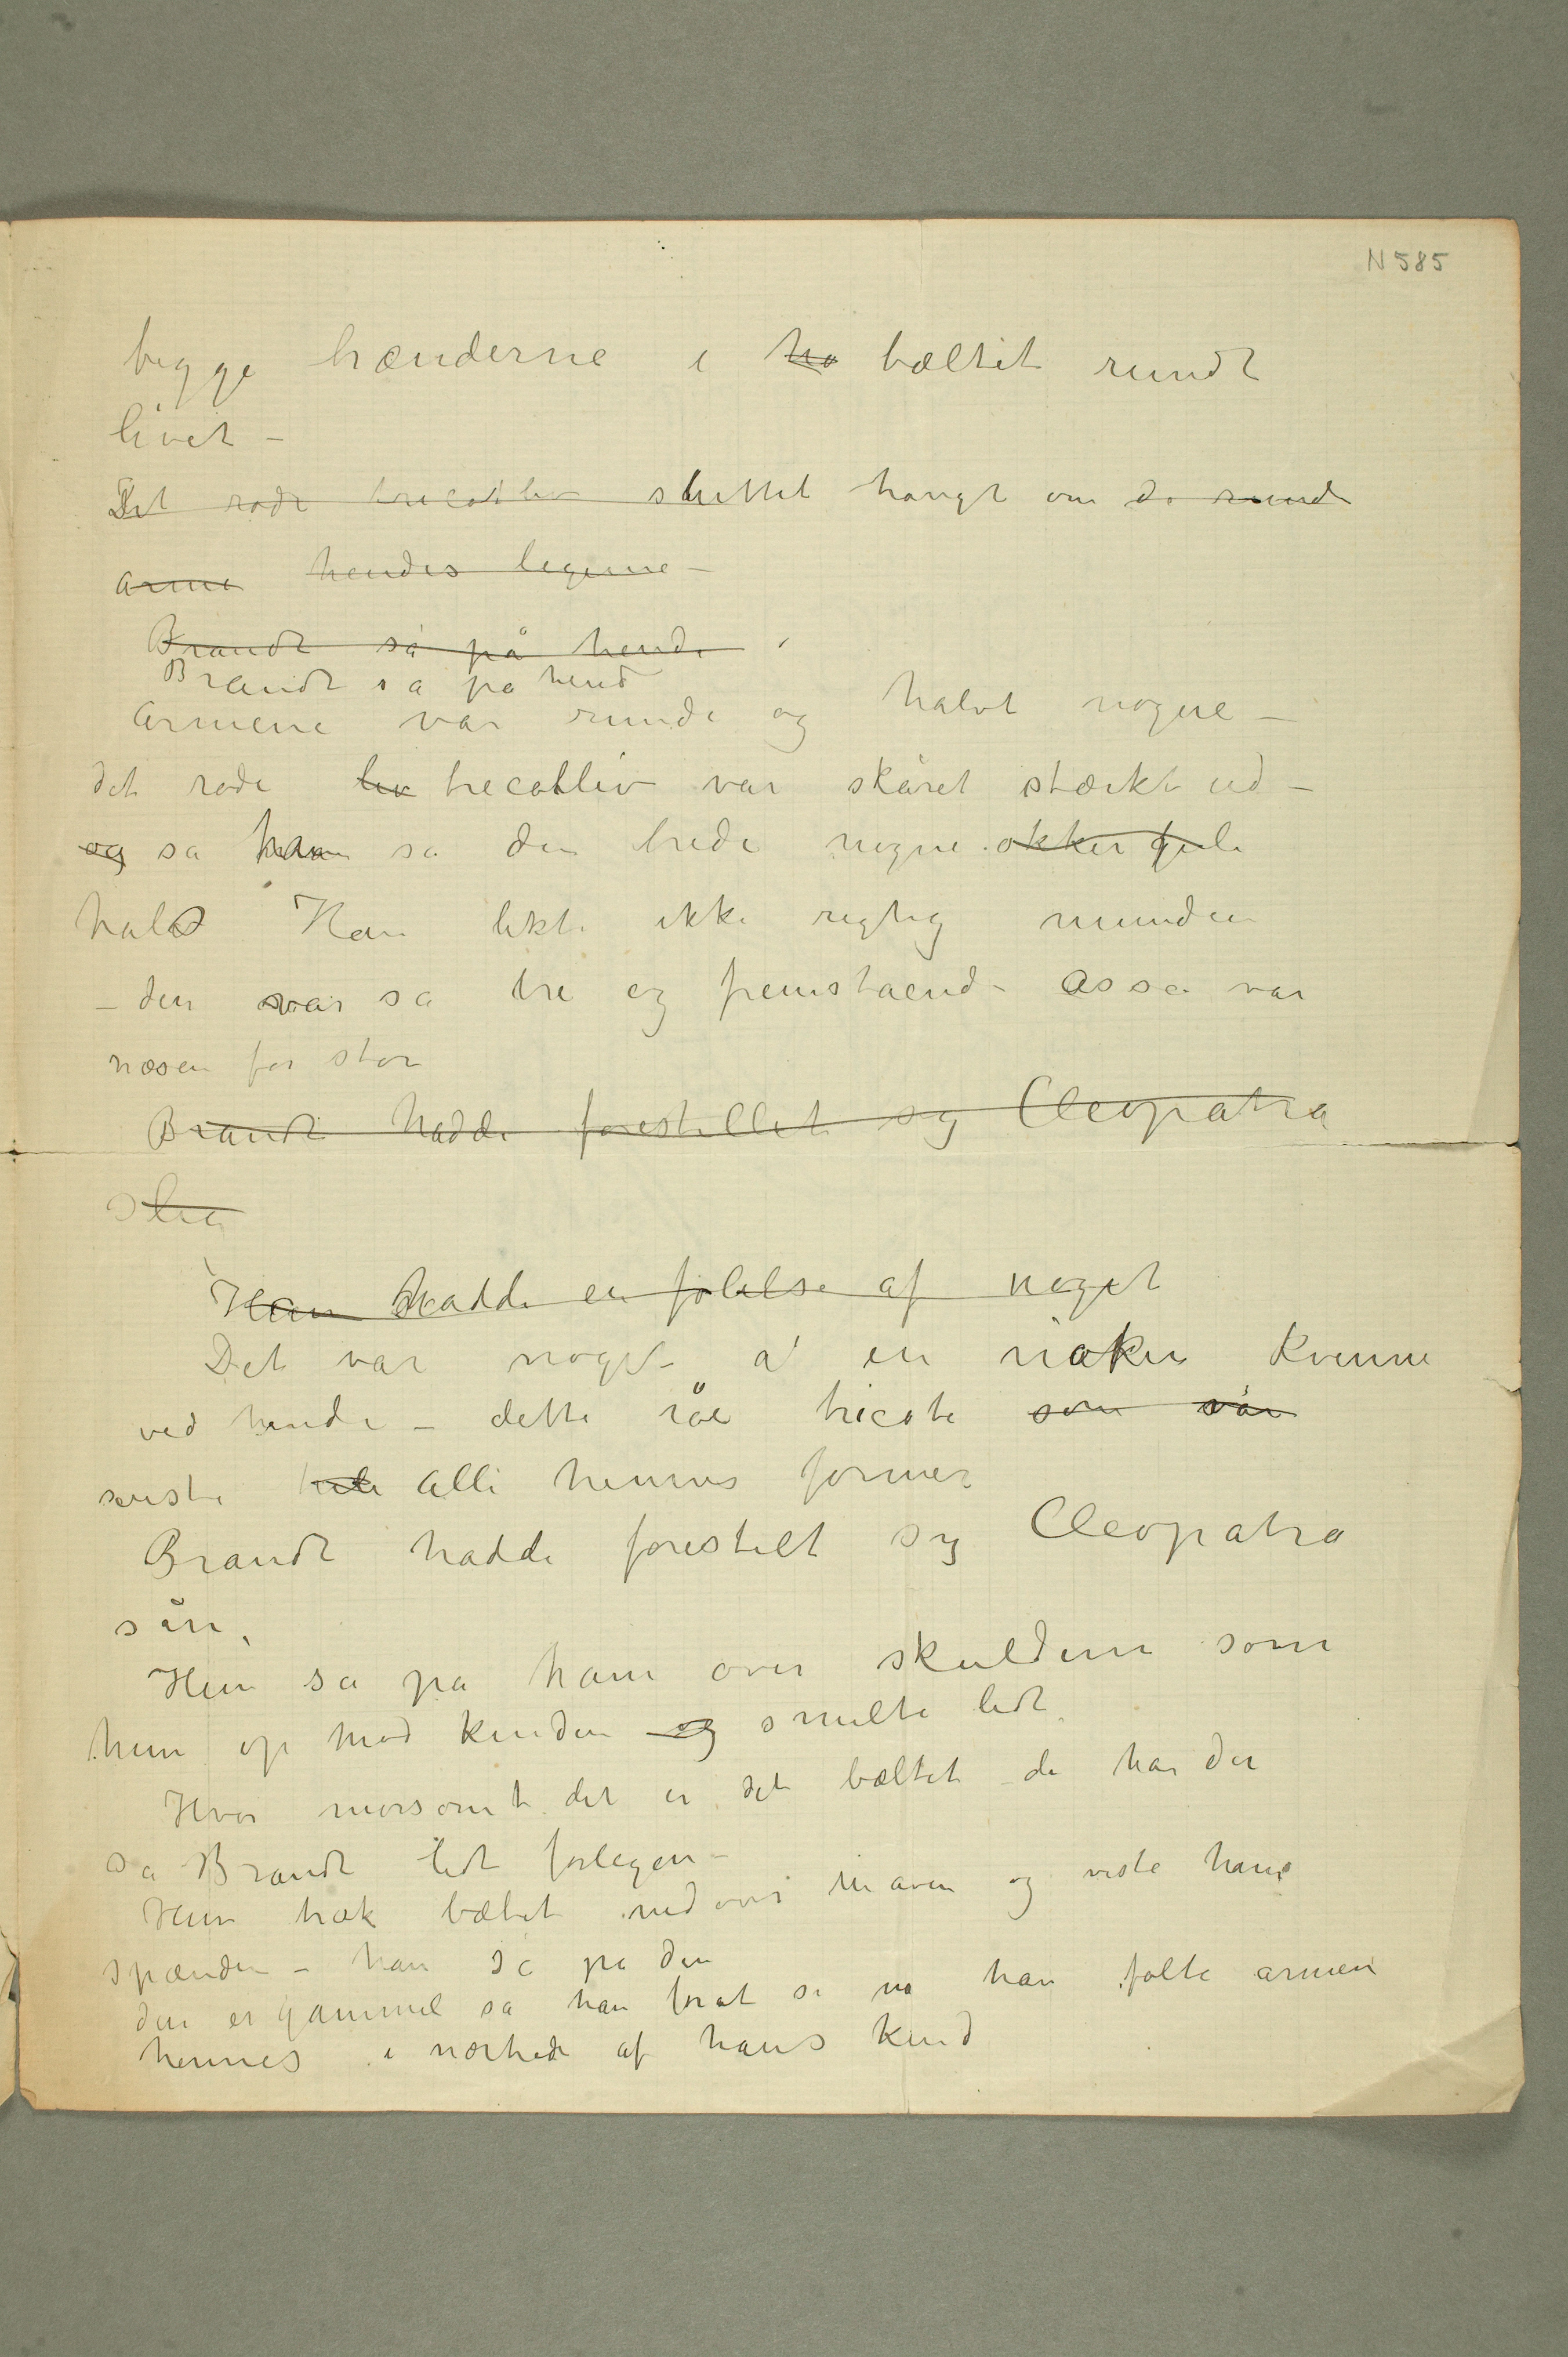 N 585
begge hænderne i ho bæltet rundt
livet –
Det røde tricotliv sluttet trangt om de runde
arme hendes legeme –
Brandt så på hende
Brandt sa på hend
Armene var runde og halvt nøgne –
det røde liv trecotliv var skåret stærkt ud –
og sa han sa den brede nøgne okkergule
hals Han likte ikke rigtig munden
– den var sa bre og fremstaend – Asså var
næsen for stor
Brandt hadde forestillet sig Cleopatra
slig
Han hadde en følelse af noget
Det var noget a' en naken kvinne
ved hende – dette røe tricote som var
viste hele alle hennes former
Brandt hadde forestilt sig Cleopatra
sån.
Hun sa på ham over skulderen som
hun op mod kinden og smilte lidt
Hvor morsomt det er det bæltet de har der
sa Brandt lidt forlegen –
Hun trak bæltet nedover maven og viste ham
spænden – han så på den
den er gammel sa han forat si no han følte armen
hennes i nærheden af hans kind